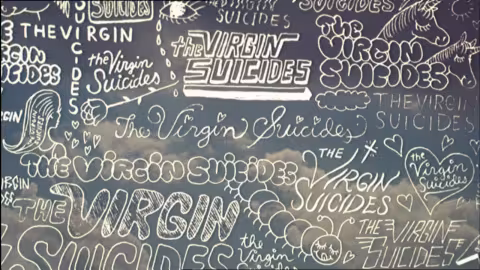 SUICIDES
THE VIRGIN
VIRGIN
SUICIDES
SUICIDES
the Virgin
Suicides
the VIRGIN
SUICIDES
The
VIRGIN
SUICIDES
THE VIRGIN
SUICIDES
VIRGIN
SUICIDES
The Virgin Suicides
VIRGIN
THE VIRGIN SUICIDES
THE
VIRGIN
SUICIDES
the
Virgin
Suicides
VIRGIN
SUICIDES
THE
VIRGIN
SUICIDES
the
Suicides
THE VIRGINE
SUICIDES